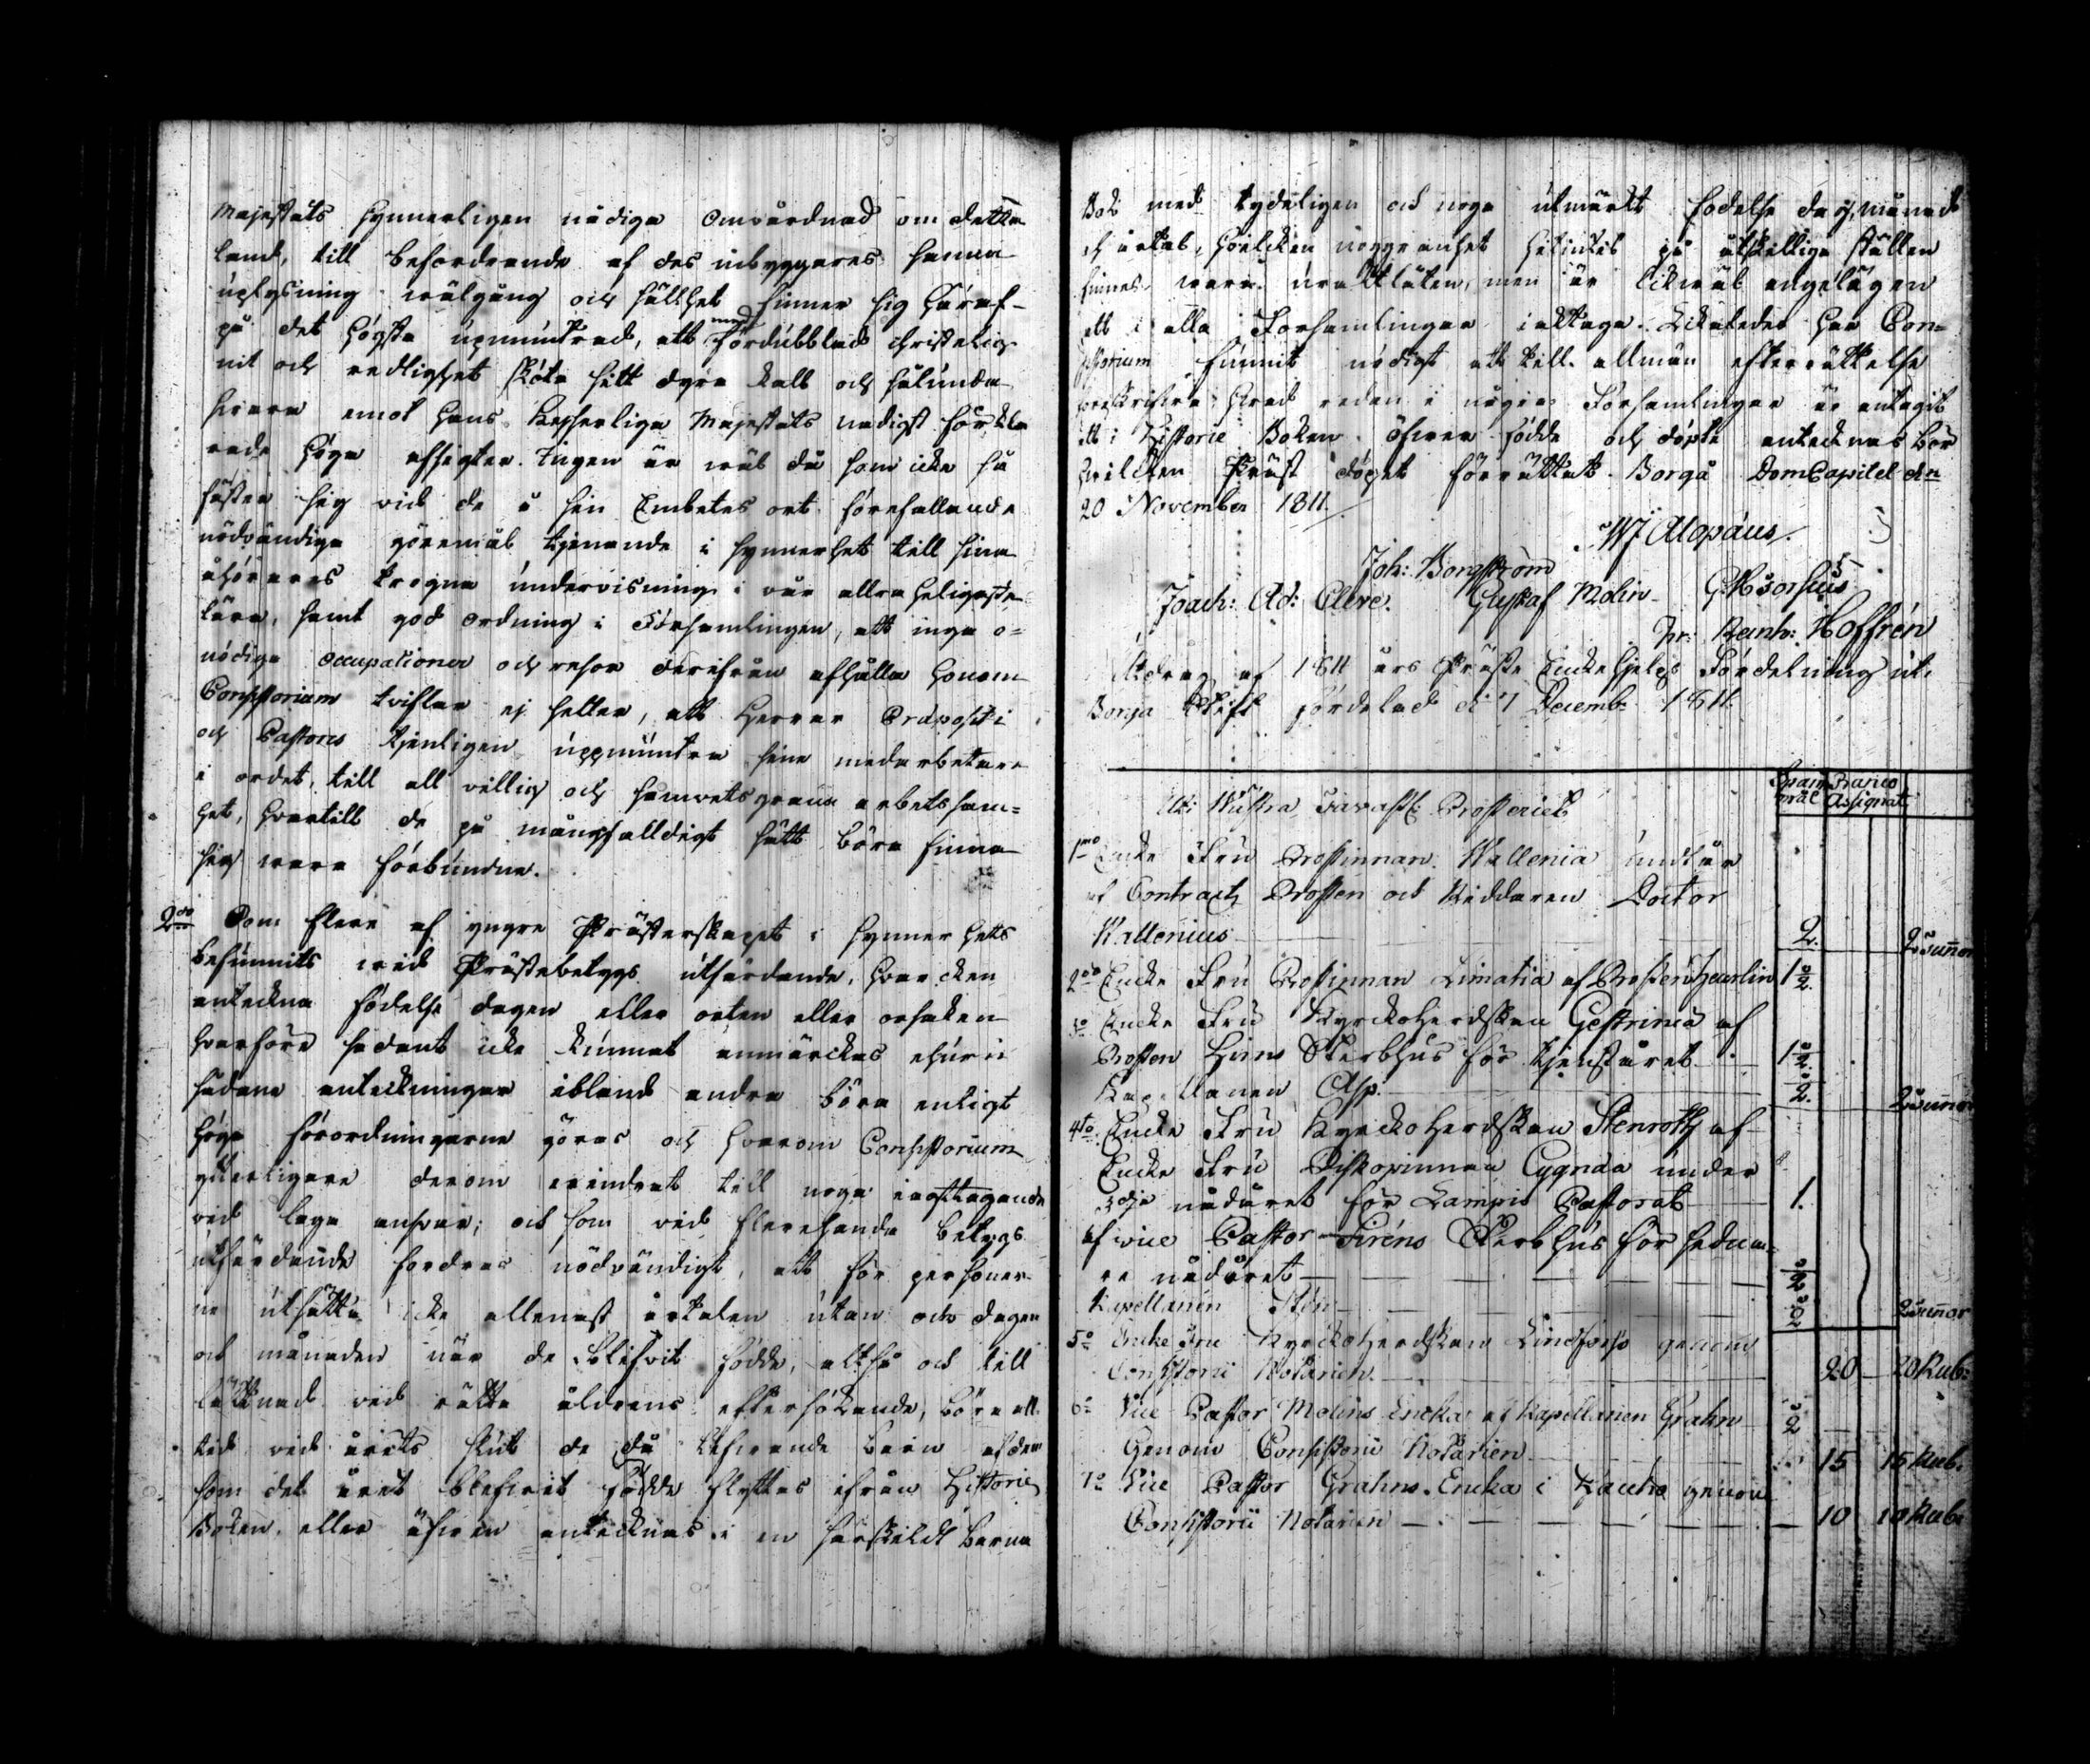 Majestäts synnerligen nådiga omvårdnad om detta
land, till befordrande af des inbyggares sanna
uplysning wälgång och sällhet finner sig häraf
på det högsta upmuntrad, att med fördubblad christelig
nit och redlighet sköta sitt dyra kall och sålunda
svara emot Hans Keyserliga Majestäts nådigst förkla
rade höga afsigter. Ingen är wäl då som icke så
fäster sig vid de å sin Embetes ort förefallande
nödvändiga göremål tjenande i synnerhet till sina
åhörares trogna undervisning i vår allra heligaste
lära, samt god ordning i Församlingen, att inga o=
nödiga occupationer och resor derifrån afhålla honom
Consistorium tviflar ej heller, att Herrar Præpositi
och Pastores tjenligen uppmuntra sine medarbetare
i ordet, till all villig och samwetsgrann arbetsam=
het, hvartill de på mångfalldigt sätt böra finna
sig vara förbundne.
2do Som flere af yngre Prästerskapet i synnerhets
befunnits wid Prästebetygs utfärdande, hvarcken
anteckna födelse dagen eller orten eller orsaken
hvarföre sådant icke kunnat anmärckas ehuru
sådane anteckningar ibland andra böra enligt
höga förordningarne göras och hvarom Consistorium
ytterligare derom erindrat till noga iagttagande
vid laga answar; och som vid flerehanda betygs
utfärdande fordras nödvändigt, att för personer
ne utsätta icke allenast årtalen utan och dagen
och månaden när de blifvit födde, altså och till
lättnad vid rätta åldrens eftersökande, böra all
tid vid årets slut de då lefwande barn af dem
som det året blefwit födde flyttas ifrån Historie
Boken eller äfwen antecknas i en särskildt Barna
Bok med tydeligen och noga utmärkt födelse dag, månad
och årtal, hvilcken noggranhet hitintils på åtskillige ställen
finnes wara uraktlåten, men är likwäl angelägen
att i alla Församlingar iakttaga. Likaledes har Con=
sistorium funnit nödigt att till allmän efterrättelse
föreskrifva hvad redan i några Församlingar är antagit
att i Historie Boken öfwer födde och döpte antecknas bör
hwilcken Präst döpet förrättat. Borgå DomCapitel den
20 November 1811.
M J Alopæus.
Joh: Borgström
Joach: Ad: Cleve. Gustaf Molin
Fr: Reinh: Hoffrén
Utdrag af 1811 års Präste Enckehjelps Fördelning uti
Borgå Stift fördelad d 7 Decemb: 1811.
Spanmål Banco Assignat
Uti Wästra Tavast: Prosteriet
1mo Encke Fru Prostinnan Wallenia undfår
af Contracts Prosten och Riddaren Doctor
Wallenius 2. 2 Tunnor
2do Encke Fru Prostinnan Limatia af Prosten 1 1/2.
3o Encke Fru Kyrckoherdskan Gestrinia af
Prosten Hirns Sterbhus för tjenståret 1 1/2.
Kapellanen Asp. 2. 2 Tunnor
4to Encke Fru Kyrckoherdskan Stenroth af
Encke Fru Biskopinnan Cygnæa under
3dje nådåret för Lampis Pastorat 1.
af vice Pastor Siréns Sterbhus för sedna=
re nådåret 1/2
Kapellanen Stén 1/2 2 Tunnor
5o Encke Fru Kyrckoherdskan Lindfors genom
Consistorii Notarien. 20 20 Rub:
6o Vice Pastor Molins Encka af Kapellanen Grahn 1/2
Genom Consistorii Notarien 15 15 Rub.
7o Vice Pastor Grahns Encka i genom
Consistorii Notarien 10 10 Rub.